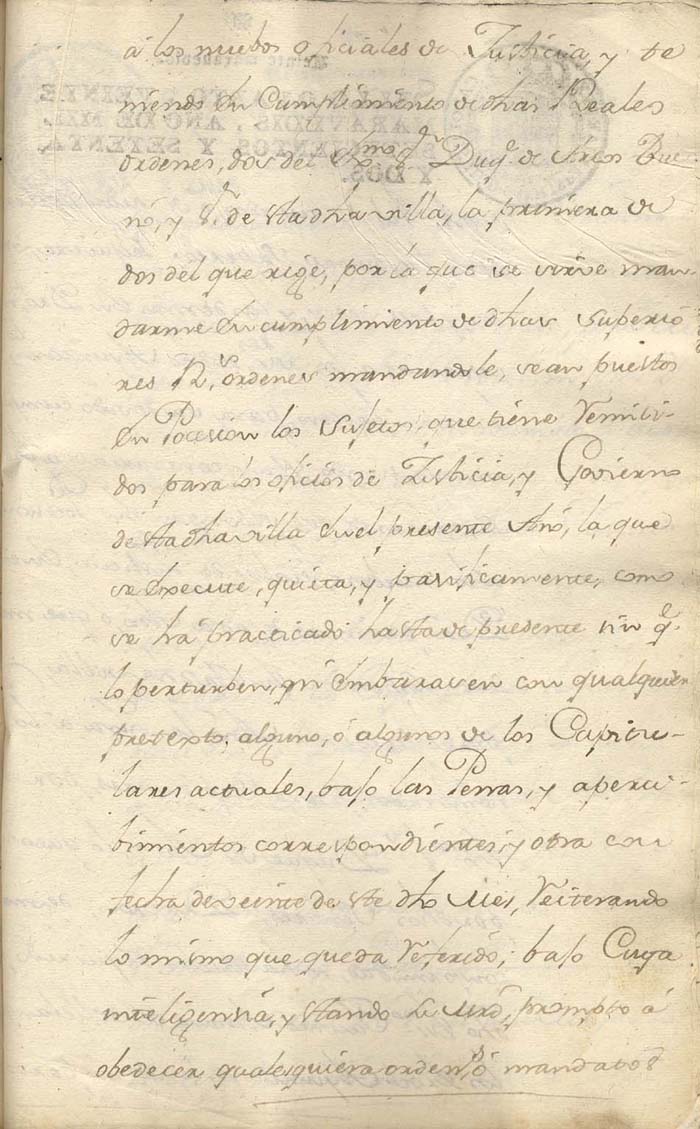 á los nuebos oficiales de Justicia, y te
niendo en Cumplimiento de dhas Reales
ordenes, dos del Exmo. Sr. Duq.e de Arcos Due
ño, y S.r de Sta dha villa, la primera de
dos del que rige, por la que se sirve man-
darme en cumplimiento de dhas superio
res R.s órdenes mandandole, sean puestos
en Poceción los sujetos, que tiene remiti-
dos para los oficios de Justicia, y Govierno
de Sta dha villa en el presente Año, la que
se execute, quieta, y pasificamente, como
se há practicado hasta de presente sin q.e
lo perturben, ni embarasen con qualquier
pretexto, alguno, ó algunos de los Capitu-
lares actuales, bajo las Penas, y aperci-
bimientos correspondientes; y otra con
fecha de veinte de este dho Mes, reiterando
lo mismo que queda referido; bajo Cuya
inteligensia, y stando su mrd, prompto á
obedecer qualesquiera orden, ó mandatos